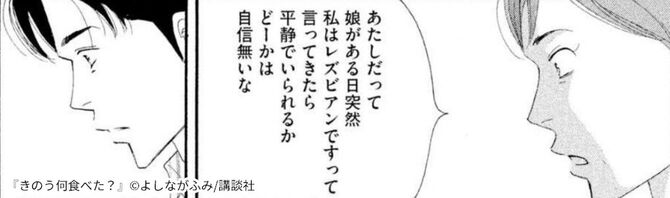 あたしだって
娘がある日突然
私はレズビアンですって
言ってきたら
平静でいられるか
どーかは
自信無いな
『きのう何食べた？』©よしながふみ/講談社